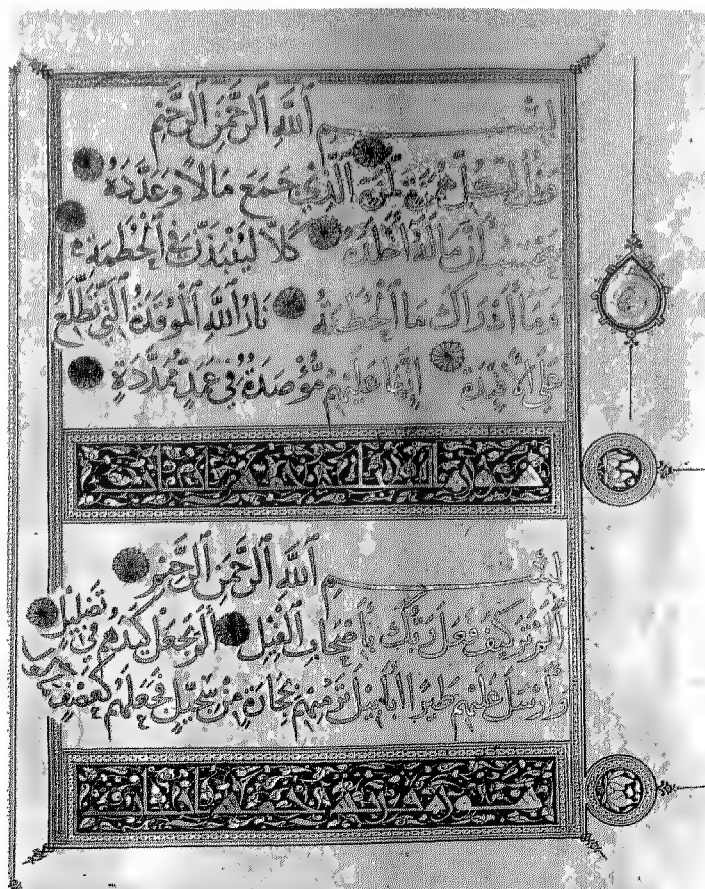 بِسْمِ ٱللَّهِ ٱلرَّحْمَنِ ٱلرَّحِيمِ
وَيْلٌ لِكُلِّ هُمَزَةٍ لُمَزَةٍ ٱلَّذِي جَمَعَ مَالاً وَعَدَّدَهُ
يَحْسَبُ أَنَّ مَالَهُ أَخْلَدَهُ كَلَّا لَيُنْبَذَنَّ فِي ٱلْحُطَمَةِ
وَمَا أَدْرَاكَ مَا ٱلْحُطَمَةُ نَارُ ٱللَّهِ ٱلْمُوقَدَةُ ٱلَّتِي تَطَّلِعُ
عَلَى ٱلْأَفْئِدَةِ إِنَّهَا عَلَيْهِمْ مُؤْصَدَةٌ فِي عَمَدٍ مُمَدَّدَةٍ
بِسْمِ ٱللَّهِ ٱلرَّحْمَنِ ٱلرَّحِيمِ
أَلَمْ تَرَ كَيْفَ فَعَلَ رَبُّكَ بِأَصْحَابِ ٱلْفِيلِ أَلَمْ يَجْعَلْ كَيْدَهُمْ فِي تَضْلِيلٍ
وَأَرْسَلَ عَلَيْهِمْ طَيْرًا أَبَابِيلَ تَرْمِيهِمْ بِحِجَارَةٍ مِنْ سِجِّيلٍ فَجَعَلَهُمْ كَعَصْفٍ مَأْكُولٍ